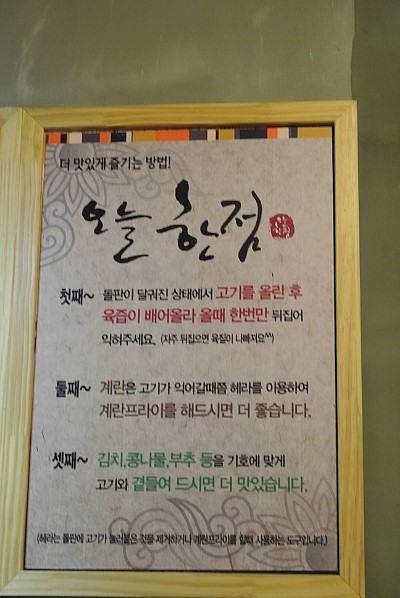 더 맛있게 즐기는 방법!
오늘 한점
첫째~ 돌판이 달궈진 상태에서 고기를 올린 후
육즙이 배어올라 올때 한번만 뒤집어
익혀주세요. (자주 뒤집으면 육질이 나빠져요^^)
둘째~ 계란은 고기가 익어갈때쯤 헤라를 이용하여
계란프라이를 해드시면 더 좋습니다.
셋째~ 김치,콩나물,부추 등을 기호에 맞게
고기와 곁들여 드시면 더 맛있습니다.
(헤라는 돌판에 고기가 눌러붙은 것을 제거하거나 계란프라이를 할때 사용하는 도구입니다.)